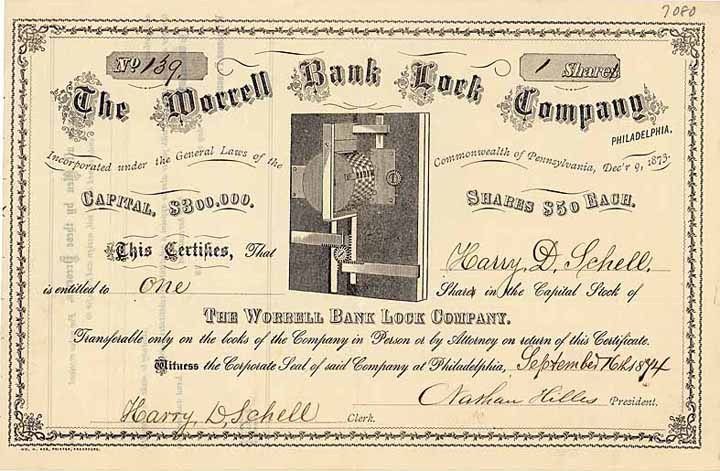 7080
No 139.
1 Shares
The Worrell Bank Lock Company
PHILADELPHIA.
Incorporated under the General Laws of the Commonwealth of Pennsylvania, Dec'r 9, 1873.
CAPITAL, $300,000.
SHARES $50 EACH.
This Certifies, That Harry D. Schell.
is entitled to One Shares in the Capital Stock of
THE WORRELL BANK LOCK COMPANY.
Transferable only on the books of the Company in Person or by Attorney on return of this Certificate.
Witness the Corporate Seal of said Company at Philadelphia, September 16th 1874
Nathan Hilles President.
Harry D. Schell Clerk.